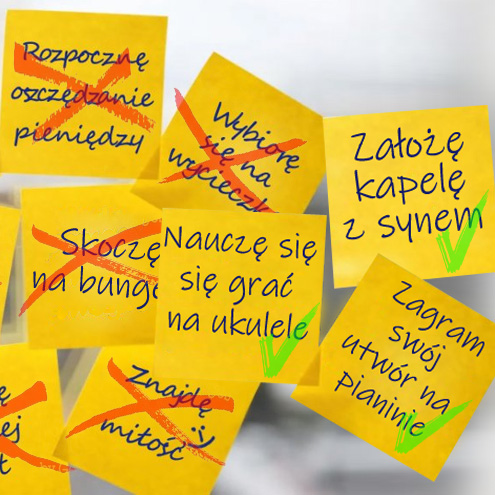 Rozpocznę
oszczędzanie
pieniędzy
Wybiorę
się na
Założę
kapelę
z synem
Skoczę
na
Nauczę się
się grać
na ukulele
Zagram
swój
utwór na
Pianinie
Znajdę
miłość